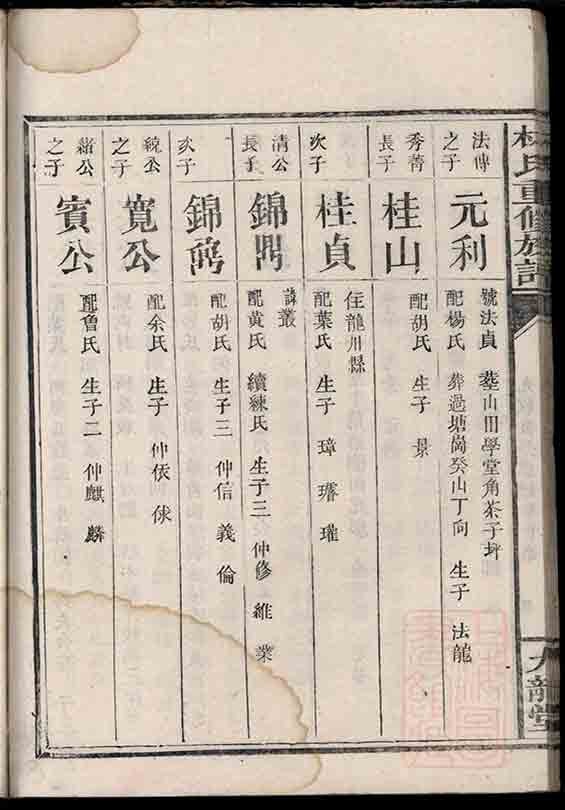 林氏重修族譜
九龍堂
法傳之子
元利
號法貞 塟山田學堂角茶子坪
配楊氏 葬過塘崗癸山丁向 生子 法龍
秀菁長子
桂山
配胡氏 生子 景
次子
桂貞
住龍川縣
配葉氏 生子 璋 璿 瓘
清公長子
錦
諱叢
配黄氏 續練氏 生子三 仲修 維 業
次子
錦
配胡氏 生子三 仲信 義 倫
統公之子
寬公
配余氏 生子 仲依 俅
緒公之子
賓公
配魯氏 生子二 仲麒 麟